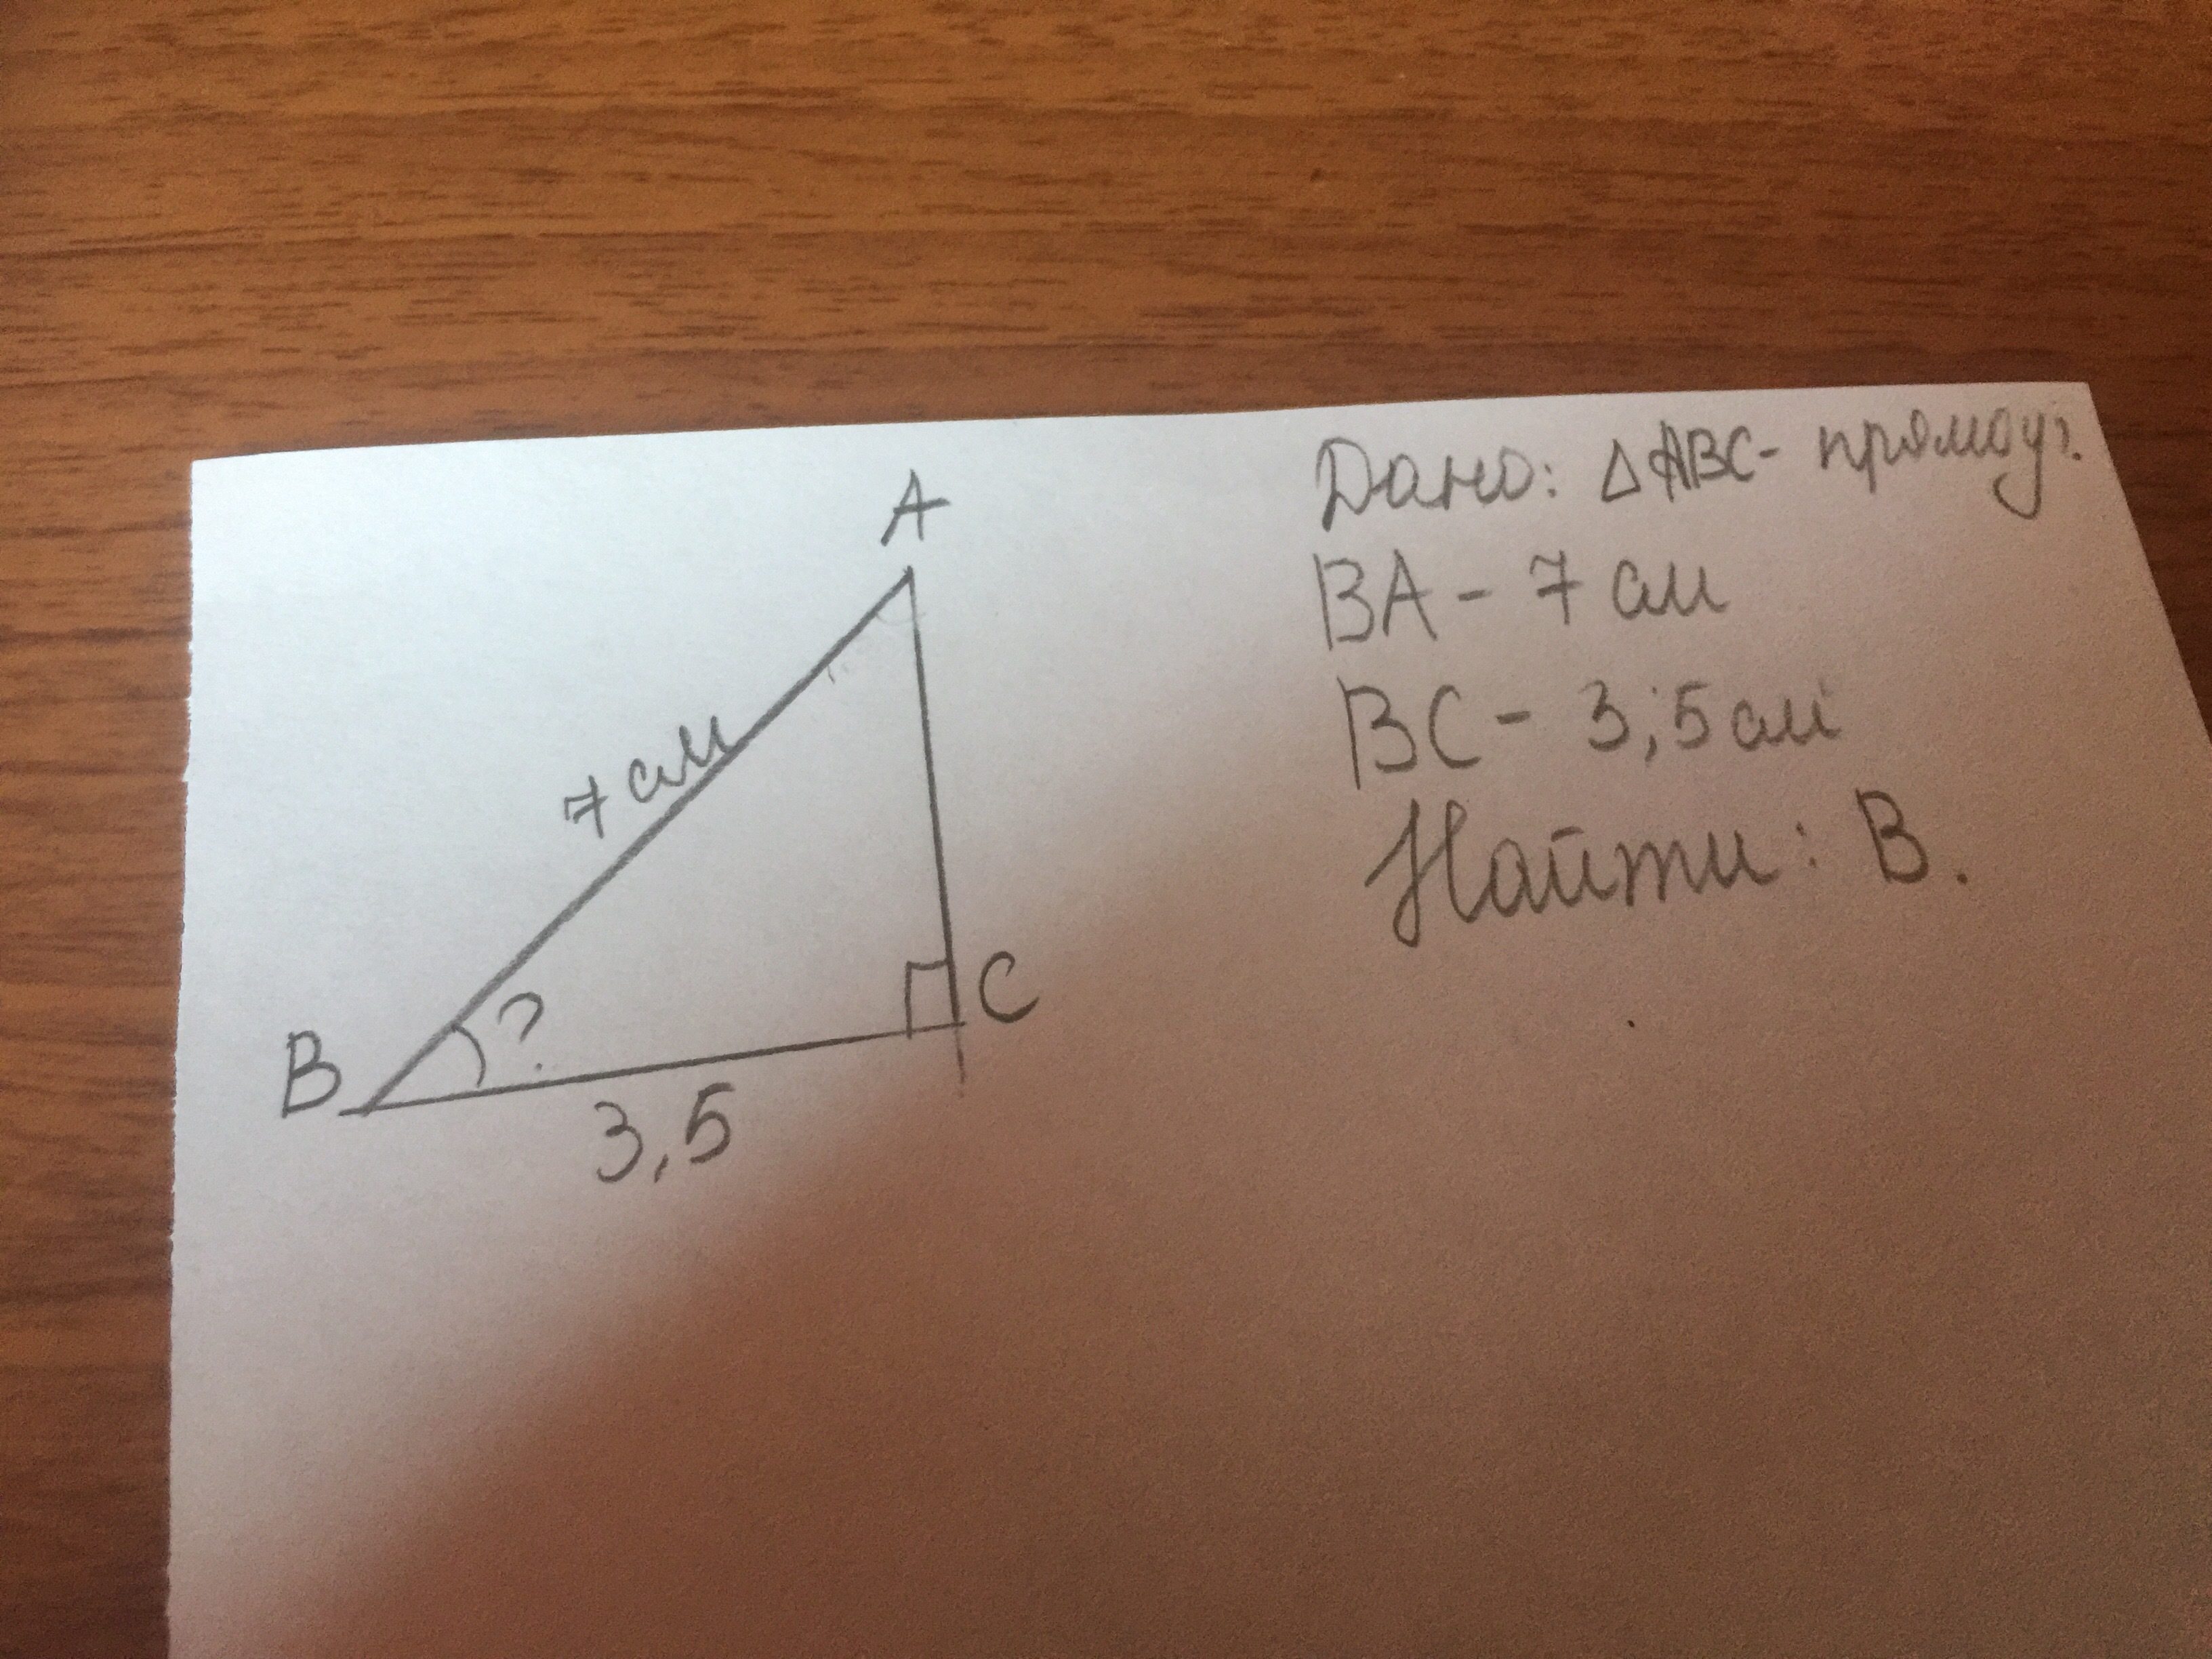 A
7 см
B
?
C
3,5
Дано: △ABC- прямоуг.
BA - 7 см
BC - 3,5 см
Найти: B.